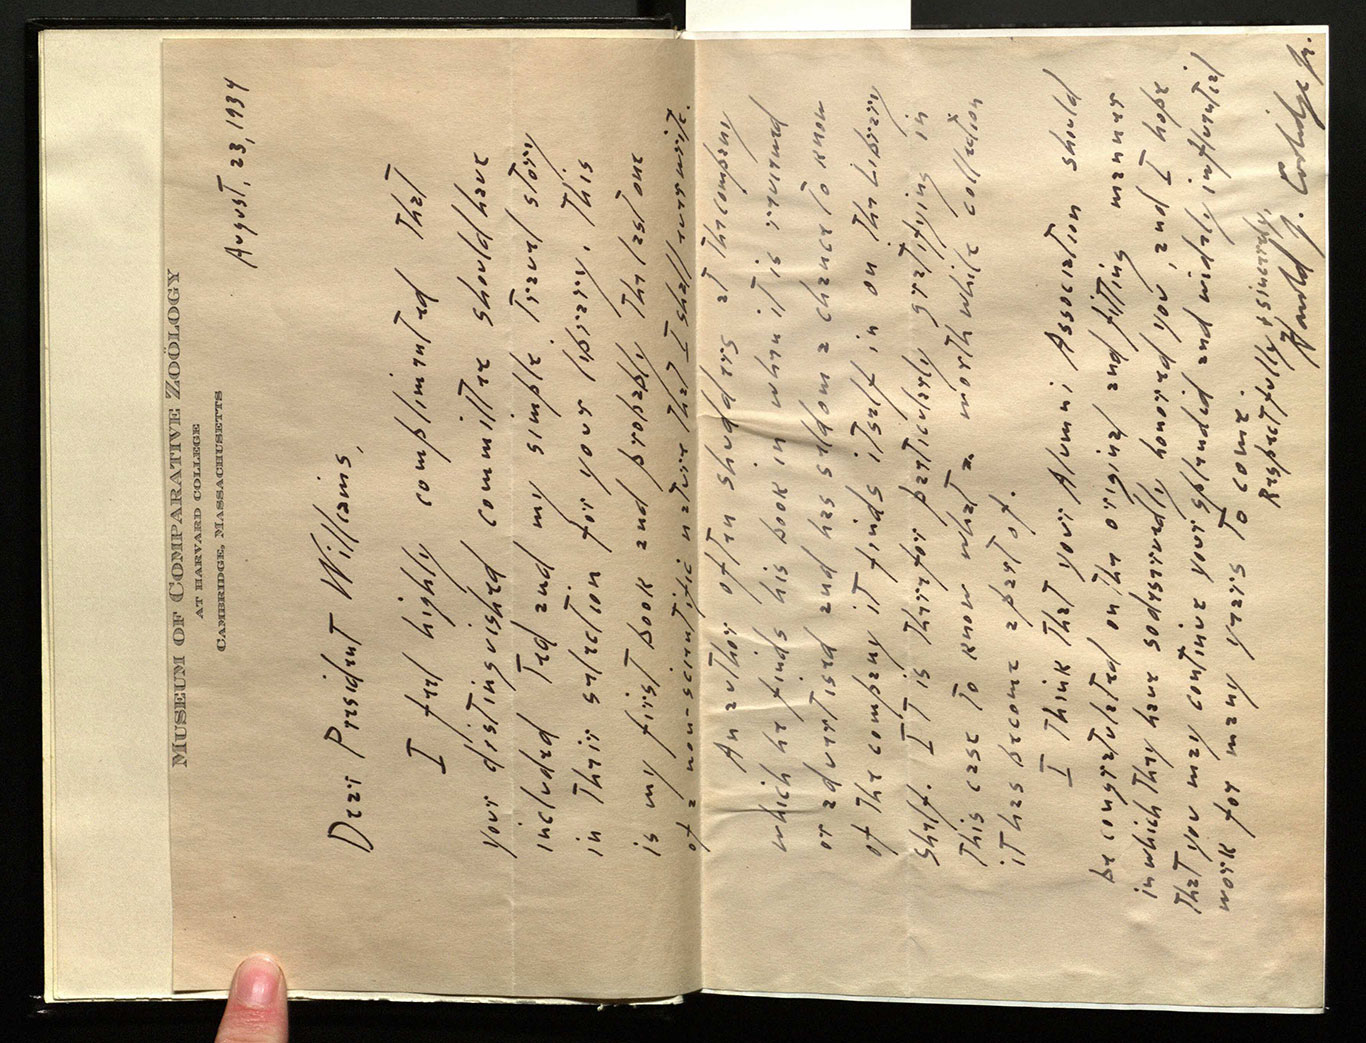 MUSEUM OF COMPARATIVE ZOÖLOGY
AT HARVARD COLLEGE
CAMBRIDGE, MASSACHUSETTS
August, 23, 1934
Dear President Williams,
I feel highly complimented that
your distinguished committee should have
included Ted and my simple travel story
in their selection for your library. This
is my first book and probably the last one
of a non-scientific nature that I shall ever write.
An author often shudders at the company
which he finds his book in when it is reviewed
or advertised and has seldom a chance to know
of the company it finds itself in on the library
shelf. It is therefor particularly gratifying in
this case to know what a worthwhile collection
it has become a part of.
I think that your Alumni Association should
be congratulated on the original and fitting manner
in which they have so deservedly honored you, and I hope
that you may continue your splendid and widely influential
work for many years to come.
Respectfully & sincerely,
Harold J. Coolidge Jr.